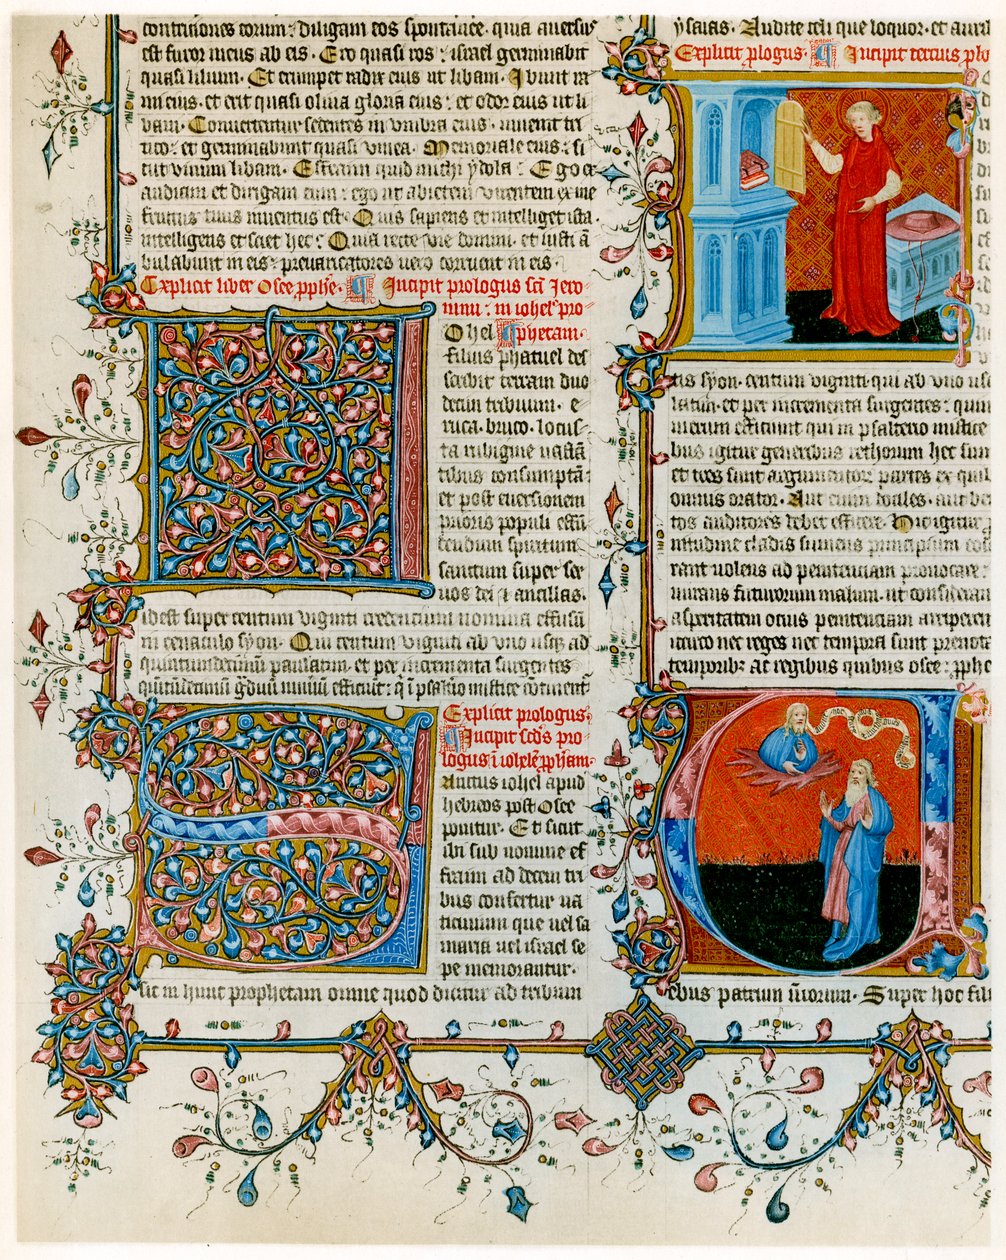 contritiones eorum: diligam eos spontanee. quia aversus
est furor meus ab eis. Ero quasi ros: israel germinabit
quasi lilium. Et erumpet radix eius ut libani. Ibunt ra
mi eius. et erit quasi oliva gloria eius: et odor eius ut li
bani. Convertentur sedentes in umbra eius. vivent tri
tico: et germinabunt quasi vinea. Memoriale eius: si
cut vinum libani. Effraim quid michi ydola: Ego ex
audiam et dirigam eum: ego ut abietem virentem ex me
fructus tuus inventus est. Quis sapiens et intelliget ista.
intelligens et sciet hec: Quia recte vie domini. et iusti ā
bulabunt in eis: prevaricatores vero corruent in eis.
Explicit liber Osee pphe. Incipit prologus sc̄i Jero
nimi: in iohel pro
phetam.
Johel
filius phatuel des
cribit terram duo
decim tribuum. e
ruca. bruco. locus
ta rubigine vastā
tibus consumptā:
et post eversionem
prioris populi effū
dendum spiritum
sanctum super ser
vos dei et ancillas.
idest super centum viginti credentium nomina effusū
in cenaculo syon. Qui centum viginti ab uno usq̄ ad
quintumdecimū paulatim et per incrementa surgentes
quītūdecimū g̃duū nūm̄ efficiūt: q̄ ī psalt̄io mistice cōtinent᷑
Explicit prologus.
Incipit sc̄ds pro
logus ī iohelē pp̄ham.
Sanctus iohel apud
hebreos post Osee
ponitur. Et sicut
ibi sub nomine ef
fraim ad decem tri
bus confertur va
ticinium que vel sa
maria vel israel se
pe memorantur.
sic in hunc prophetam omne quod dicitur ad tribum
ysaias. Audite celi que loquor. et auri
Explicit plogus. Incipit tercius plo
tis syon. centum viginti. qui ab uno usq
latim. et per incrementa surgentes: quin
merum efficiunt qui in psalterio mistice
bus igitur generibus rethorum hec sunt
et tres sunt argumentor partes ex quib
omnis orator. Aut enim dociles. aut be
tos auditores debet efficere. Hic igitur p
nitudine cladis sumens principium eos
rant volens ad penitenciam provocare:
muratis futurorum malum. ut consideran
asperitatem ocius penitenciam arriperen
idcirco nec reges nec tempora sunt prenota
temporib᷒ at regibus quibus osee: pphe
ebus patrum vestrorum. Super hoc fili